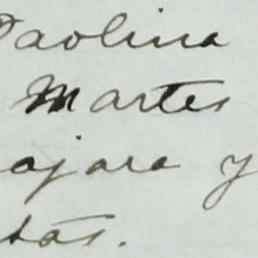 Paolina
Martes
ajara y
tas.